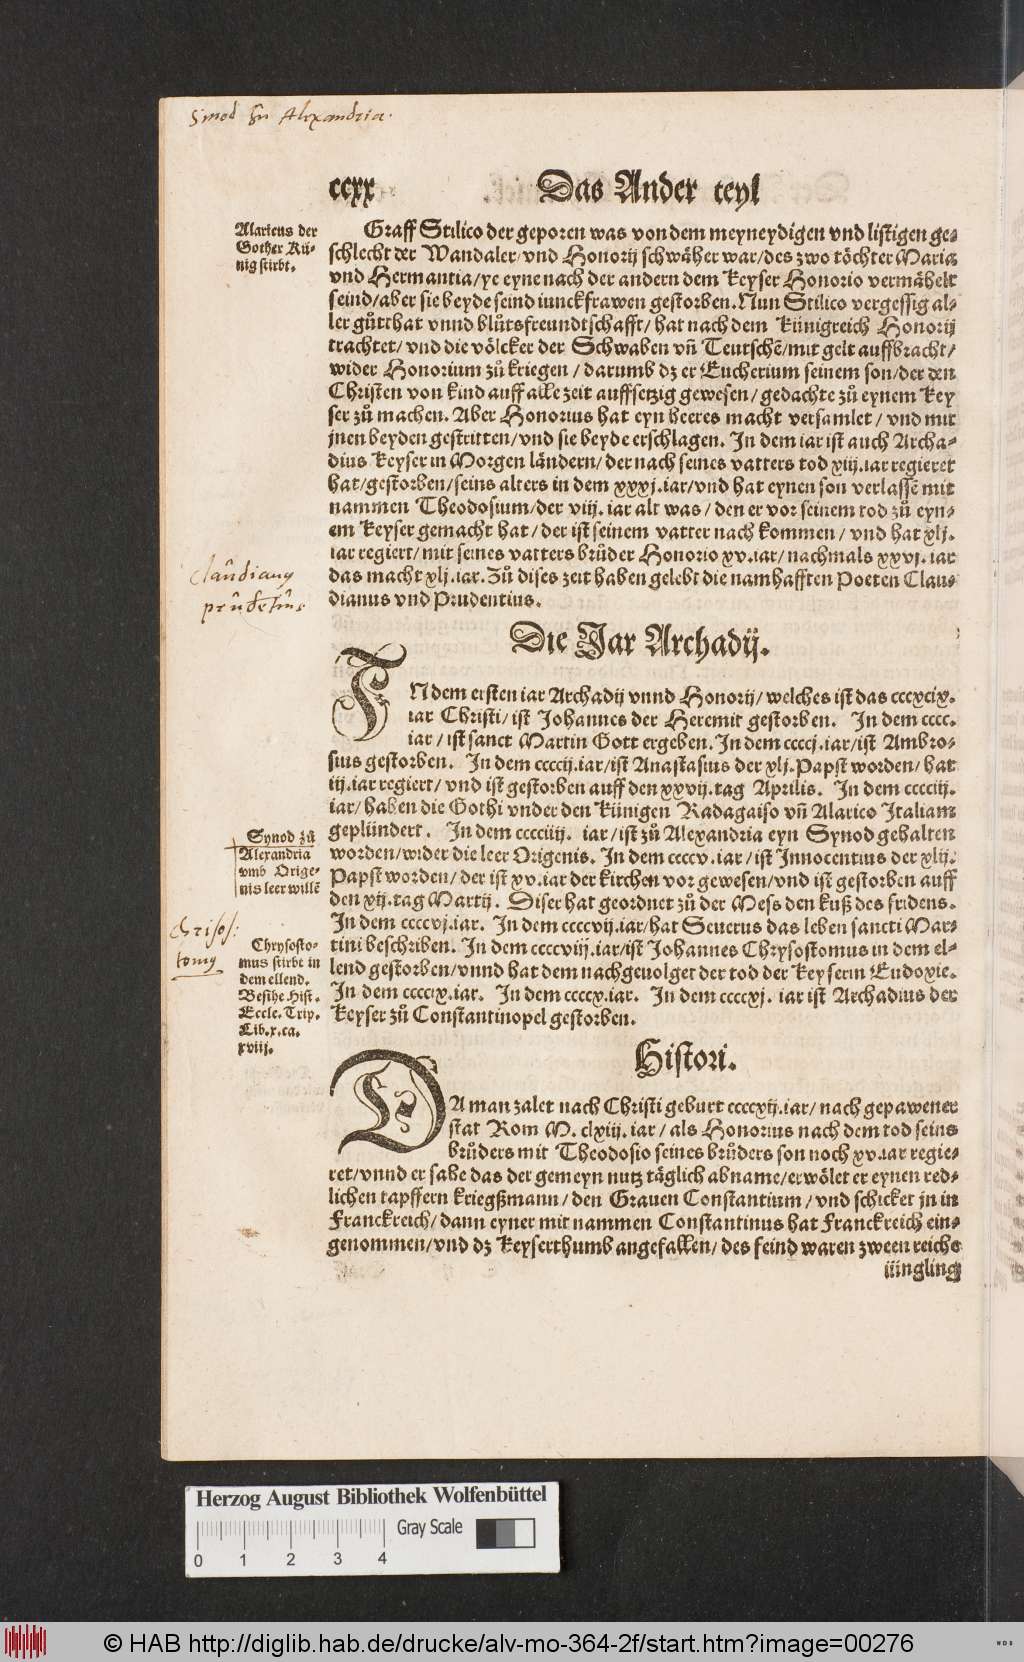 Sinod zu Alexandria.
ccxx
Das Ander teyl
Alaricus der
Gother Kü-
nig stirbt.
Graff Stilico der geporen was von dem meyneydigen vnd listigen ge-
schlecht der Wandaler/vnd Honorij schwäher war/des zwo töchter Maria
vnd Hermantia/ye eyne nach der andern dem Keyser Honorio vermähelt
seind/aber sie beyde seind iunckfrawen gestorben. Nun Stilico vergessig al-
ler gůtthat vnnd blůtsfreundtschafft/ hat nach dem Künigreich Honorij
trachtet/ vnd die völcker der Schwaben vñ Teutschē/mit gelt auffbracht/
wider Honorium zů kriegen / darumb dz er Eucherium seinem son/der den
Christen von kind auff alle zeit auffsetzig gewesen/ gedachte zů eynem Key
ser zů machen. Aber Honorius hat eyn heeres macht versamlet / vnd mit
jnen beyden gestritten/vnd sie beyde erschlagen. In dem iar ist auch Archa-
dius Keyser in Morgen ländern/ der nach seines vatters tod xiij.iar regieret
hat/gestorben/seins alters in dem xxxj.iar/vnd hat eynen son verlassē mit
nammen Theodosium/der viij. iar alt was / den er vor seinem tod zů eyn-
em Keyser gemacht hat / der ist seinem vatter nach kommen / vnd hat xlj.
iar regiert/ mit seines vatters brůder Honorio xv.iar/ nachmals xxvj. iar
das macht xlj.iar. Zů dises zeit haben gelebt die namhafften Poeten Clau-
dianus vnd Prudentius.
Claudianus
prudentius
Die Jar Archadij.
IN dem ersten iar Archadij vnnd Honorij/ welches ist das cccxcix.
iar Christi/ ist Johannes der Heremit gestorben. In dem cccc.
iar / ist sanct Martin Gott ergeben. In dem ccccj.iar/ist Ambro-
sius gestorben. In dem ccccij.iar/ist Anastasius der xlj. Papst worden/ hat
iij.iar regiert/ vnd ist gestorben auff den xxvij.tag Aprilis. In dem cccciij.
iar/ haben die Gothi vnder den Künigen Radagaiso vñ Alarico Italiam
geplündert. In dem cccciiij. iar/ist zů Alexandria eyn Synod gehalten
worden/wider die leer Origenis. In dem ccccv.iar / ist Innocentius der xlij.
Papst worden/ der ist xv.iar der kirchen vor gewesen/vnd ist gestorben auff
den xij.tag Martij. Diser hat geordnet zů der Mess den kuß des fridens.
In dem ccccvj.iar. In dem ccccvij.iar/hat Seuerus das leben sancti Mar-
tini beschriben. In dem ccccviij.iar/ist Johannes Chrysostomus in dem el-
lend gestorben/vnnd hat dem nachgeuolget der tod der Keyserin Eudoxie.
In dem ccccix.iar. In dem ccccx.iar. In dem ccccxj. iar ist Archadius der
Keyser zů Constantinopel gestorben.
Synod zů
Alexandria
vmb Orige-
nis leer willē
Chrisos:
tomus
Chrysosto-
mus stirbt in
dem ellend.
Besihe Hist.
Eccle. Trip.
Lib.x.ca.
xviij.
Histori.
DA man zalet nach Christi geburt ccccxij.iar/ nach gepawener
stat Rom M. clxiij. iar / als Honorius nach dem tod seins
brůders mit Theodosio seines brůders son noch xv.iar regie-
ret/vnnd er sahe das der gemeyn nutz täglich abname/erwölet er eynen red-
lichen tapffern kriegßmann / den Grauen Constantium / vnd schicket jn in
Franckreich/ dann eyner mit nammen Constantinus hat Franckreich ein-
genommen/vnd dz Keyserthumb angefallen/ des feind waren zween reiche
iüngling
Herzog August Bibliothek Wolfenbüttel
Gray Scale
0 1 2 3 4
© HAB http://diglib.hab.de/drucke/alv-mo-364-2f/start.htm?image=00276